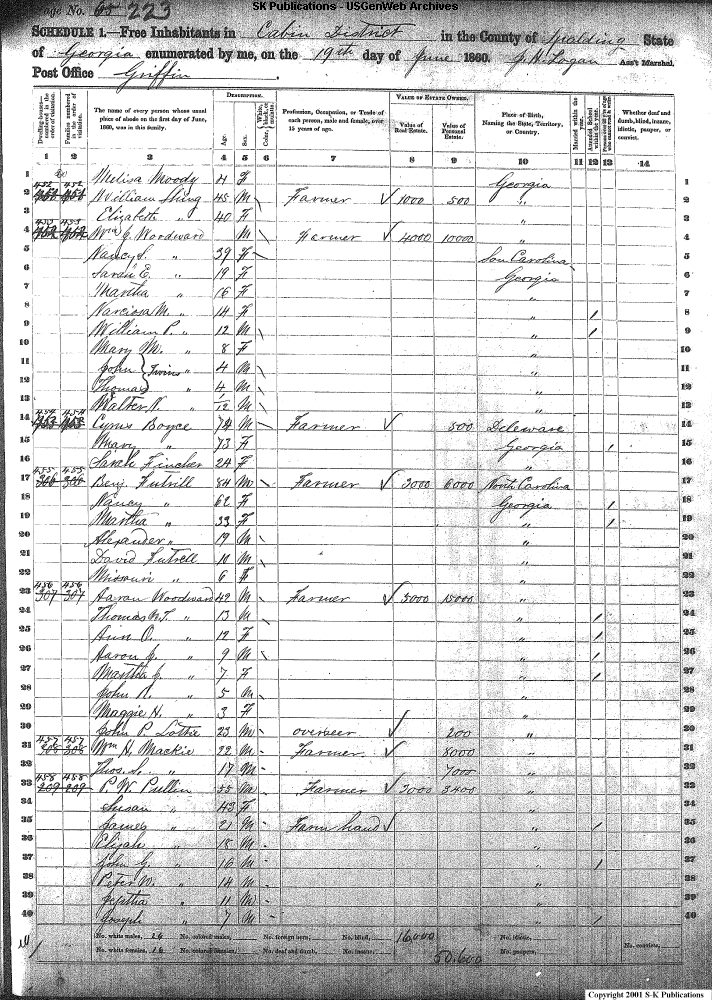 SK Publications - USGenWeb Archives
Page No. 65 223
SCHEDULE 1.—Free Inhabitants in Cabin District in the County of Spalding State
of Georgia enumerated by me, on the 19th day of June 1860. J. H. Logan Ass't Marshal.
Post Office Griffin
DESCRIPTION. VALUE OF ESTATE OWNED.
Dwelling-houses—numbered in the order of visitation. Families numbered in the order of visitation. The name of every person whose usual place of abode on the first day of June, 1860, was in this family. Age. Sex. Color, White, black, or mulatto. Profession, Occupation, or Trade of each person, male and female, over 15 years of age. Value of Real Estate. Value of Personal Estate. Place of Birth, Naming the State, Territory, or Country. Married within the year. Attended School within the year. Whether deaf and dumb, blind, insane, idiotic, pauper, or convict.
1 2 3 4 5 6 7 8 9 10 11 12 13 14
1 Melisa Moody 4 F Georgia 1
2 452 452 William 45 M Farmer 1000 500 " 2
3 Elizabeth " 40 F " 3
4 453 453 Wm J. Woodward M Farmer 4000 10000 " 4
5 Nancy S. " 39 F Sou Carolina 5
6 Sarah E. " 19 F Georgia 6
7 Martha " 16 F " 7
8 Narcissa M. " 14 F " / 8
9 William P. " 12 M " / 9
10 Mary M. " 8 F " 10
11 John } Twins " 4 M " 11
12 Thomas " 4 M " 12
13 Walter N. " 1/12 M " 13
14 454 454 Cyrus Boyce 74 M Farmer 500 Deleware 14
15 Mary " 73 F Georgia / 15
16 Sarah Fincher 24 F " 16
17 455 455 306 306 Benj. Futrill 84 M Farmer 3000 6000 North Carolina 17
18 Nancy " 62 F Georgia / 18
19 Martha " 33 F " / 19
20 Alexander " 19 M " 20
21 David Futrell 10 M " 21
22 Missouri " 6 F " 22
23 456 456 307 307 Aaron Woodward 42 M Farmer 5000 15000 " 23
24 Thomas " 13 M " / 24
25 Ann O. " 12 F " / 25
26 Aaron J. " 9 M " / 26
27 Martha J. " 7 F " / 27
28 John R. " 5 M " 28
29 Maggie H. " 3 F " 29
30 John P. Lottie 23 M overseer 200 " 30
31 457 457 308 308 Wm H. Mackie 22 M Farmer 8000 " 31
32 Thos. S. " 17 M 7000 " 32
33 458 458 209 209 P. W. Pullin 55 M Farmer 3000 3400 " 33
34 Susan " 43 F " 34
35 James " 21 M Farm hand " / 35
36 Elijah " 18 M " 36
37 John G. " 16 M " / 37
38 Peter W. " 14 M " 38
39 Jeptha " 11 M " 39
40 Joseph " 7 M " / 40
No. white males, 24 No. colored males, No. foreign born, No. blind, 16,000 No. idiotic,
No. white females, 16 No. colored females, No. deaf and dumb, No. insane, 50,600 No. paupers, No. convicts,
Copyright 2001 S-K Publications